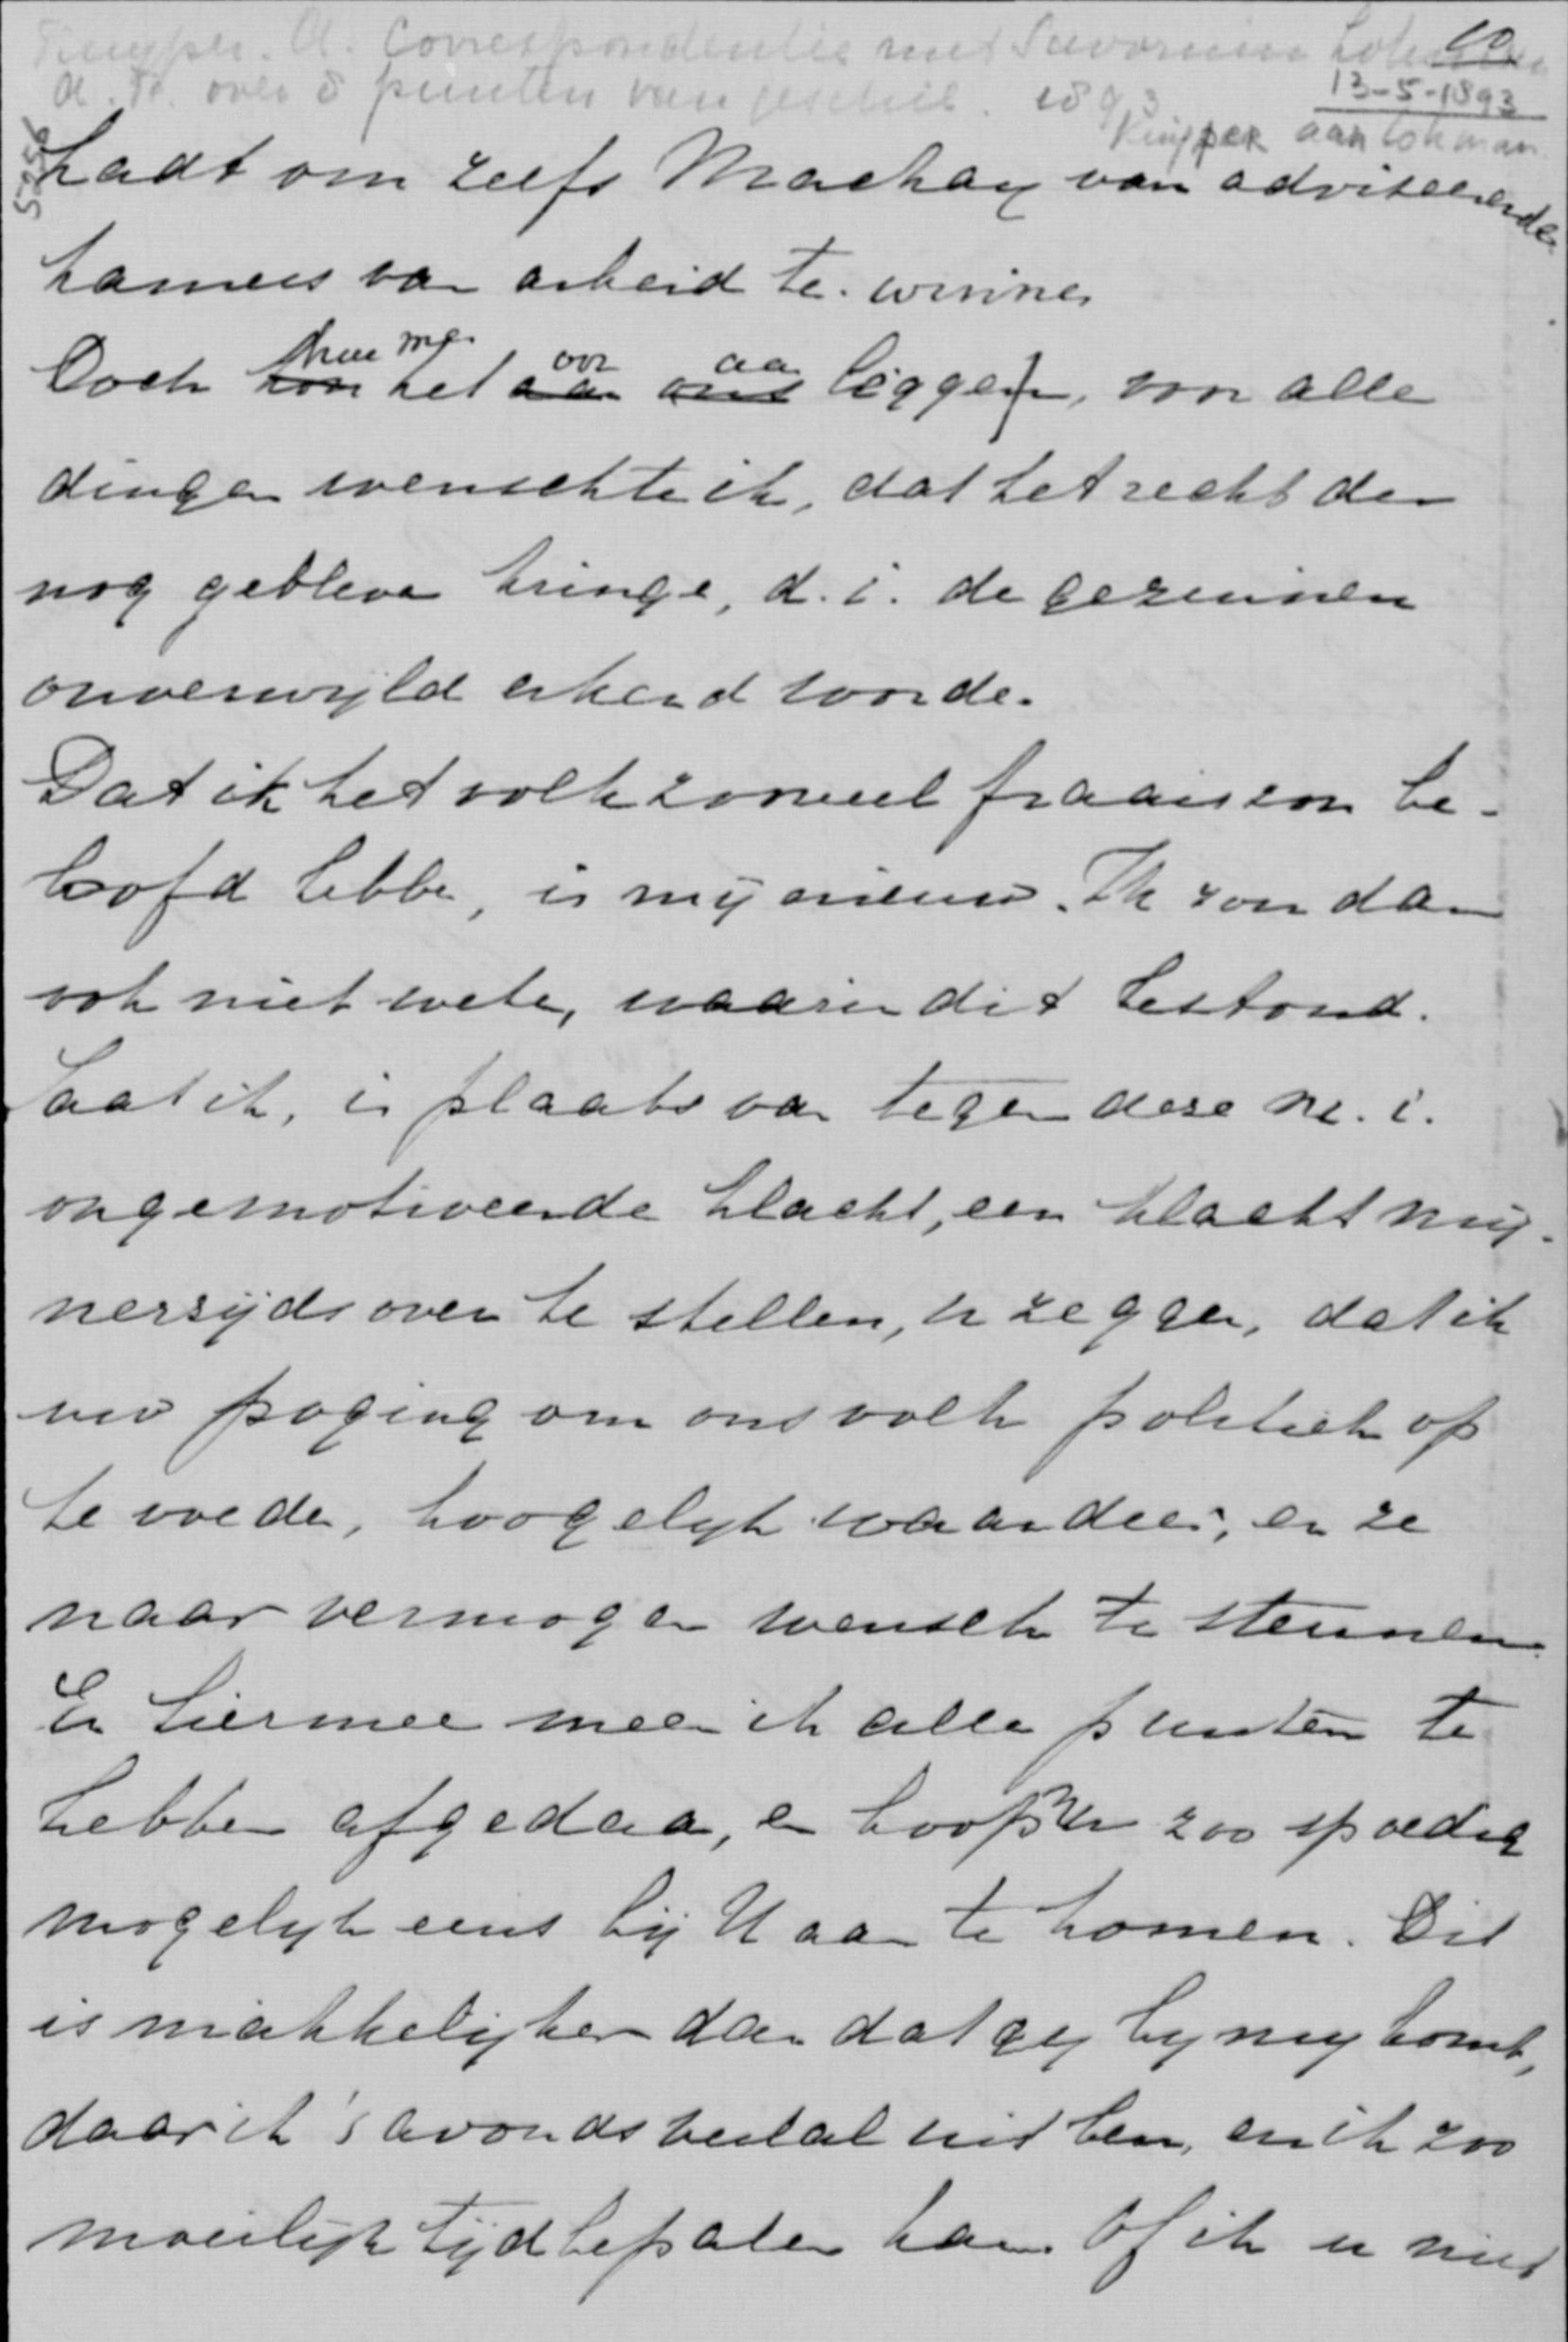 Kuyper. A. Correspondentie met Savornin Lohman
10
d. Fr. over 8 punten van geschil. 1893
13-5-1893
Kuyper aan Lohman
5256
hadt om zelfs Mackay van adviseerende
kamers van arbeid te winnen
Doch hoe me het voor aan liggen, voor alle
dingen wenschte ik, dat het recht der
nog gebleven kringe, d. i. de gezinnen
onverwijld erkend worde.
Dat ik het volk zooveel fraais zou be-
loofd hebbe, is mij nieuw. Ik zou dan
ook niet weten, waarin dit bestond.
Laat ik, in plaats van tegen deze m. i.
ongemotiveerde klacht, een klacht mij-
nerzijds over te stellen, u zeggen, dat ik
uw poging om ons volk politiek op
te voeden, hoogelijk waardeer, en ze
naar vermogen wensch te steunen.
En hiermee meen ik alle punten te
hebben afgedaan, en hoop ik zoo spoedig
mogelijk eens bij U aan te komen. Dit
is makkelijker dan dat gij bij mij komt,
daar ik 's avonds veelal uit ben, en ik zoo
moeilijk tijd bepalen kan. Of ik u niet